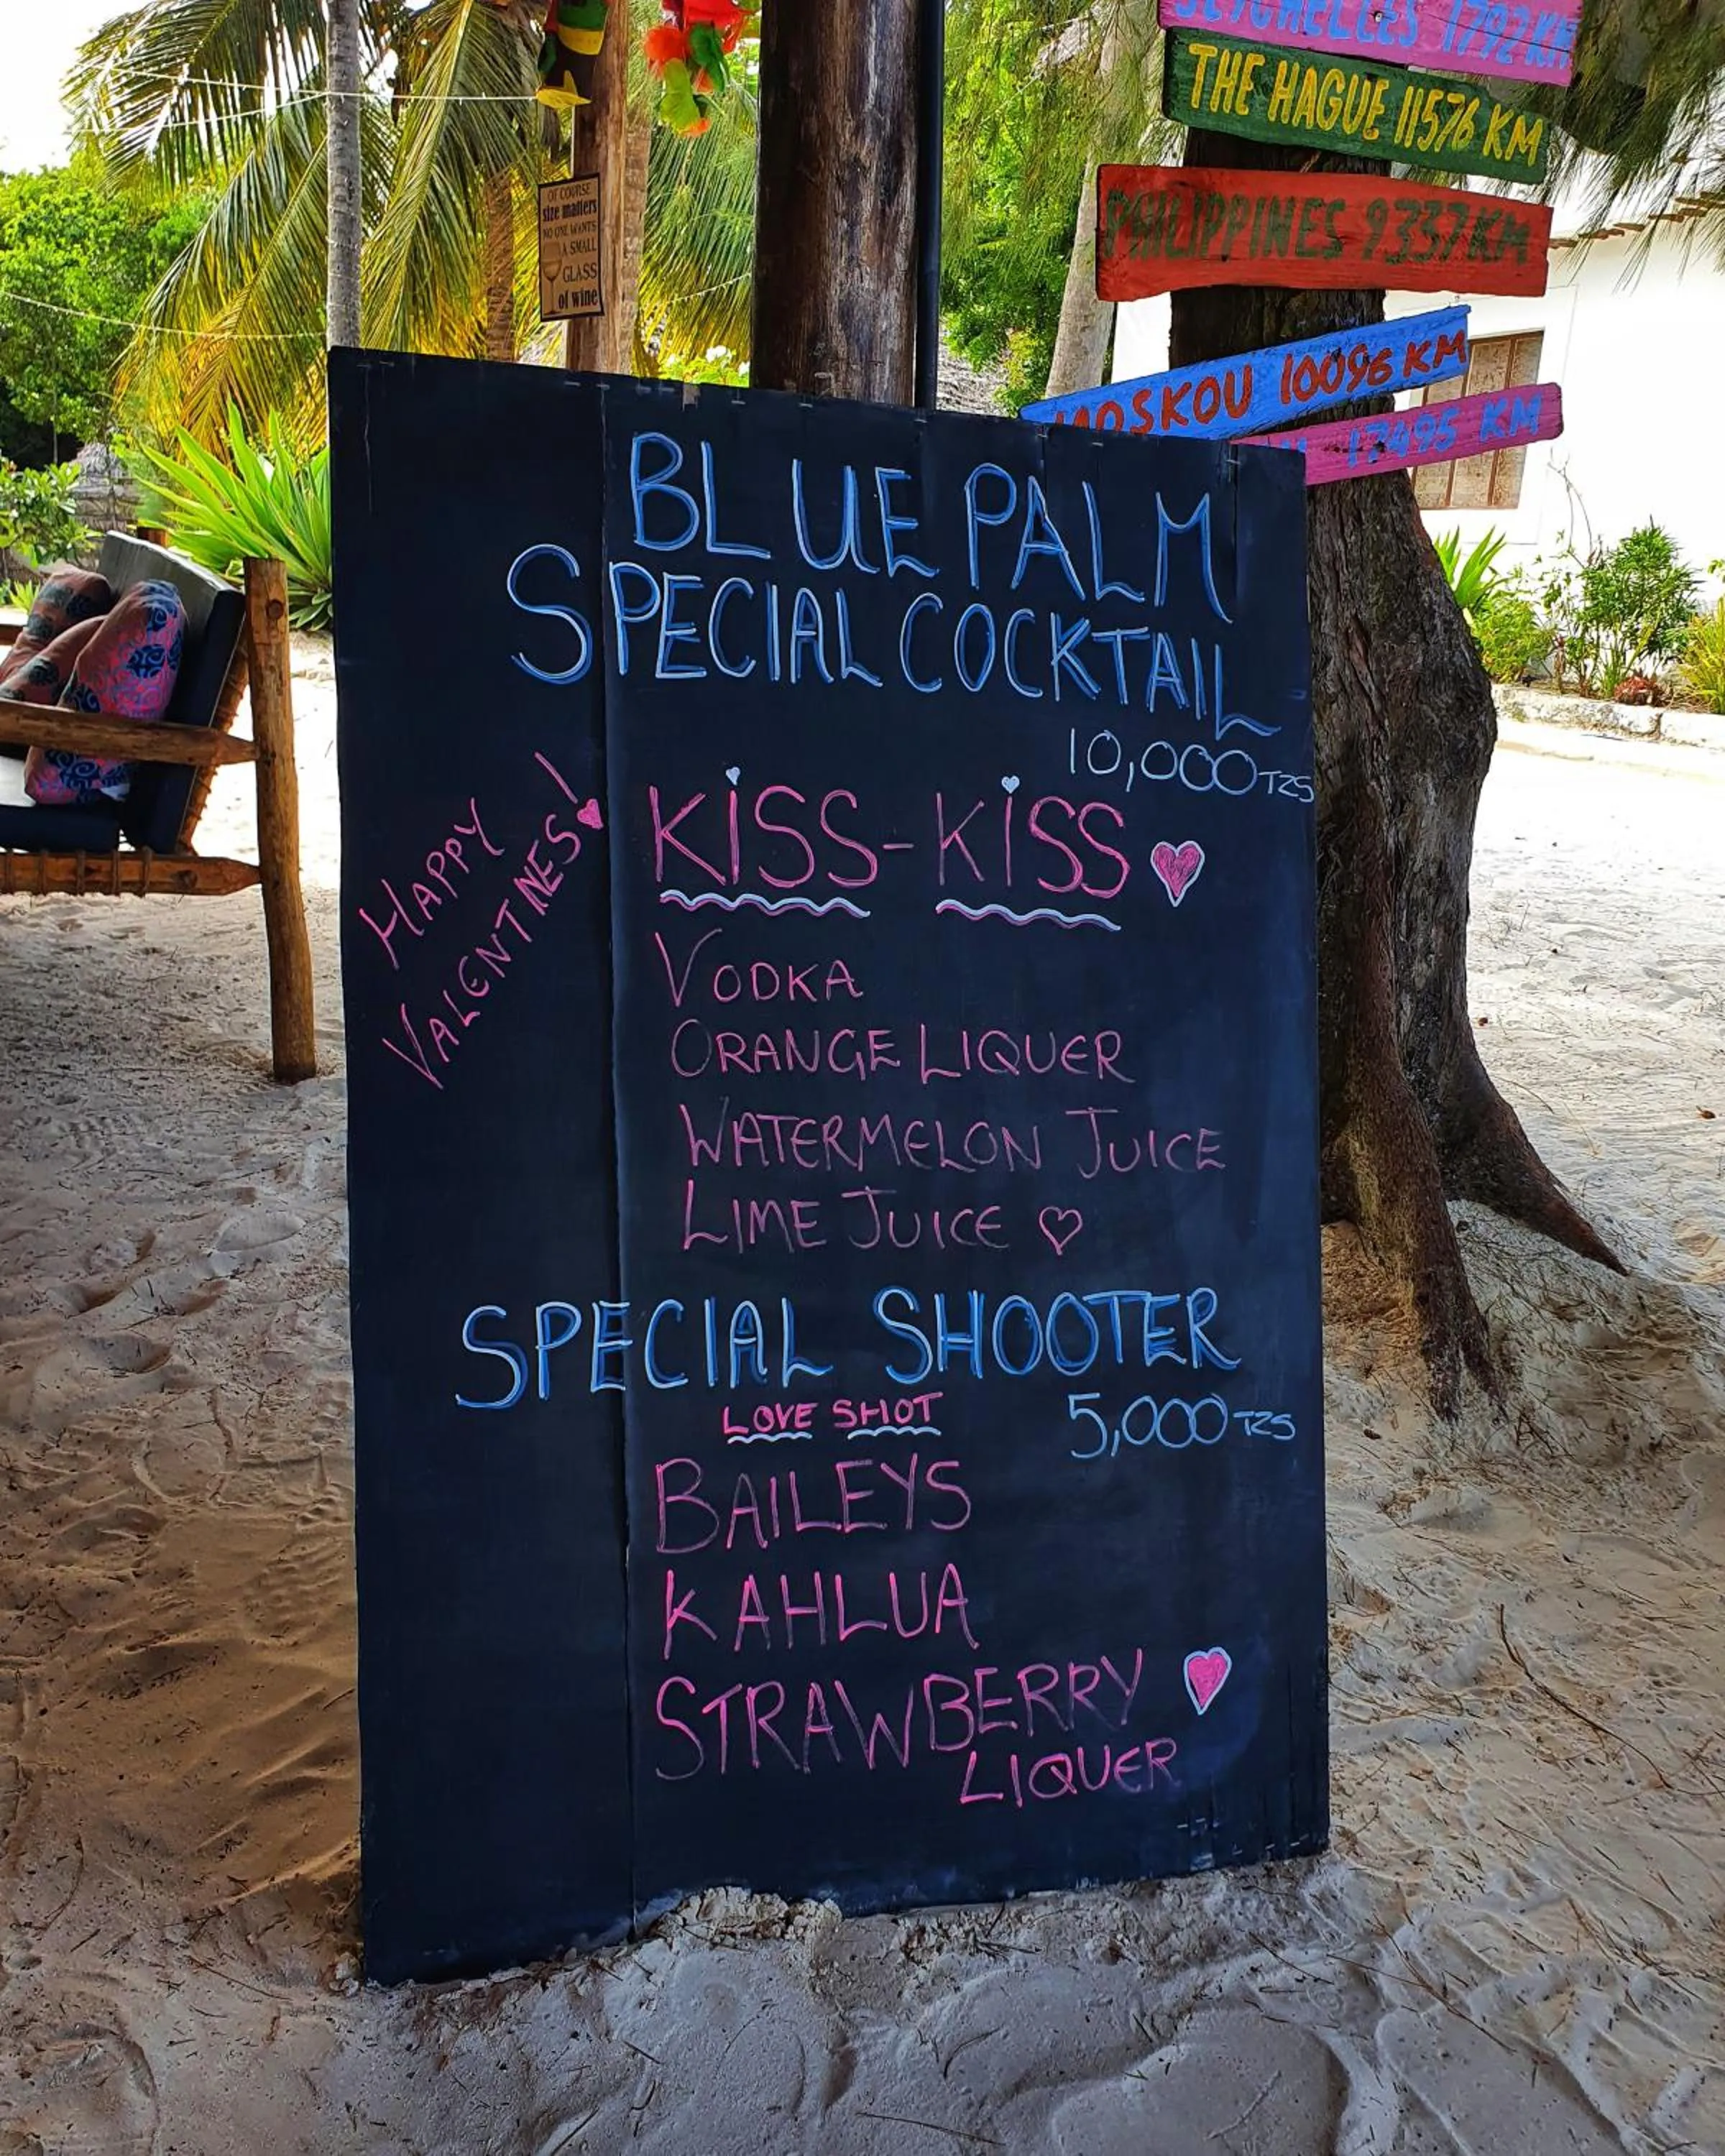 SEYCHELLES 1792 KM
THE HAGUE 11576 KM
PHILIPPINES 9337 KM
MOSKOU 10096 KM
17495 KM
OF COURSE
size matters
NO ONE WANTS
A SMALL
GLASS
of wine
BLUE PALM
SPECIAL COCKTAIL
10,000 TZS
HAPPY
VALENTINES!
KISS-KISS
VODKA
ORANGE LIQUER
WATERMELON JUICE
LIME JUICE
SPECIAL SHOOTER
LOVE SHOT
5,000 TZS
BAILEYS
KAHLUA
STRAWBERRY
LIQUER